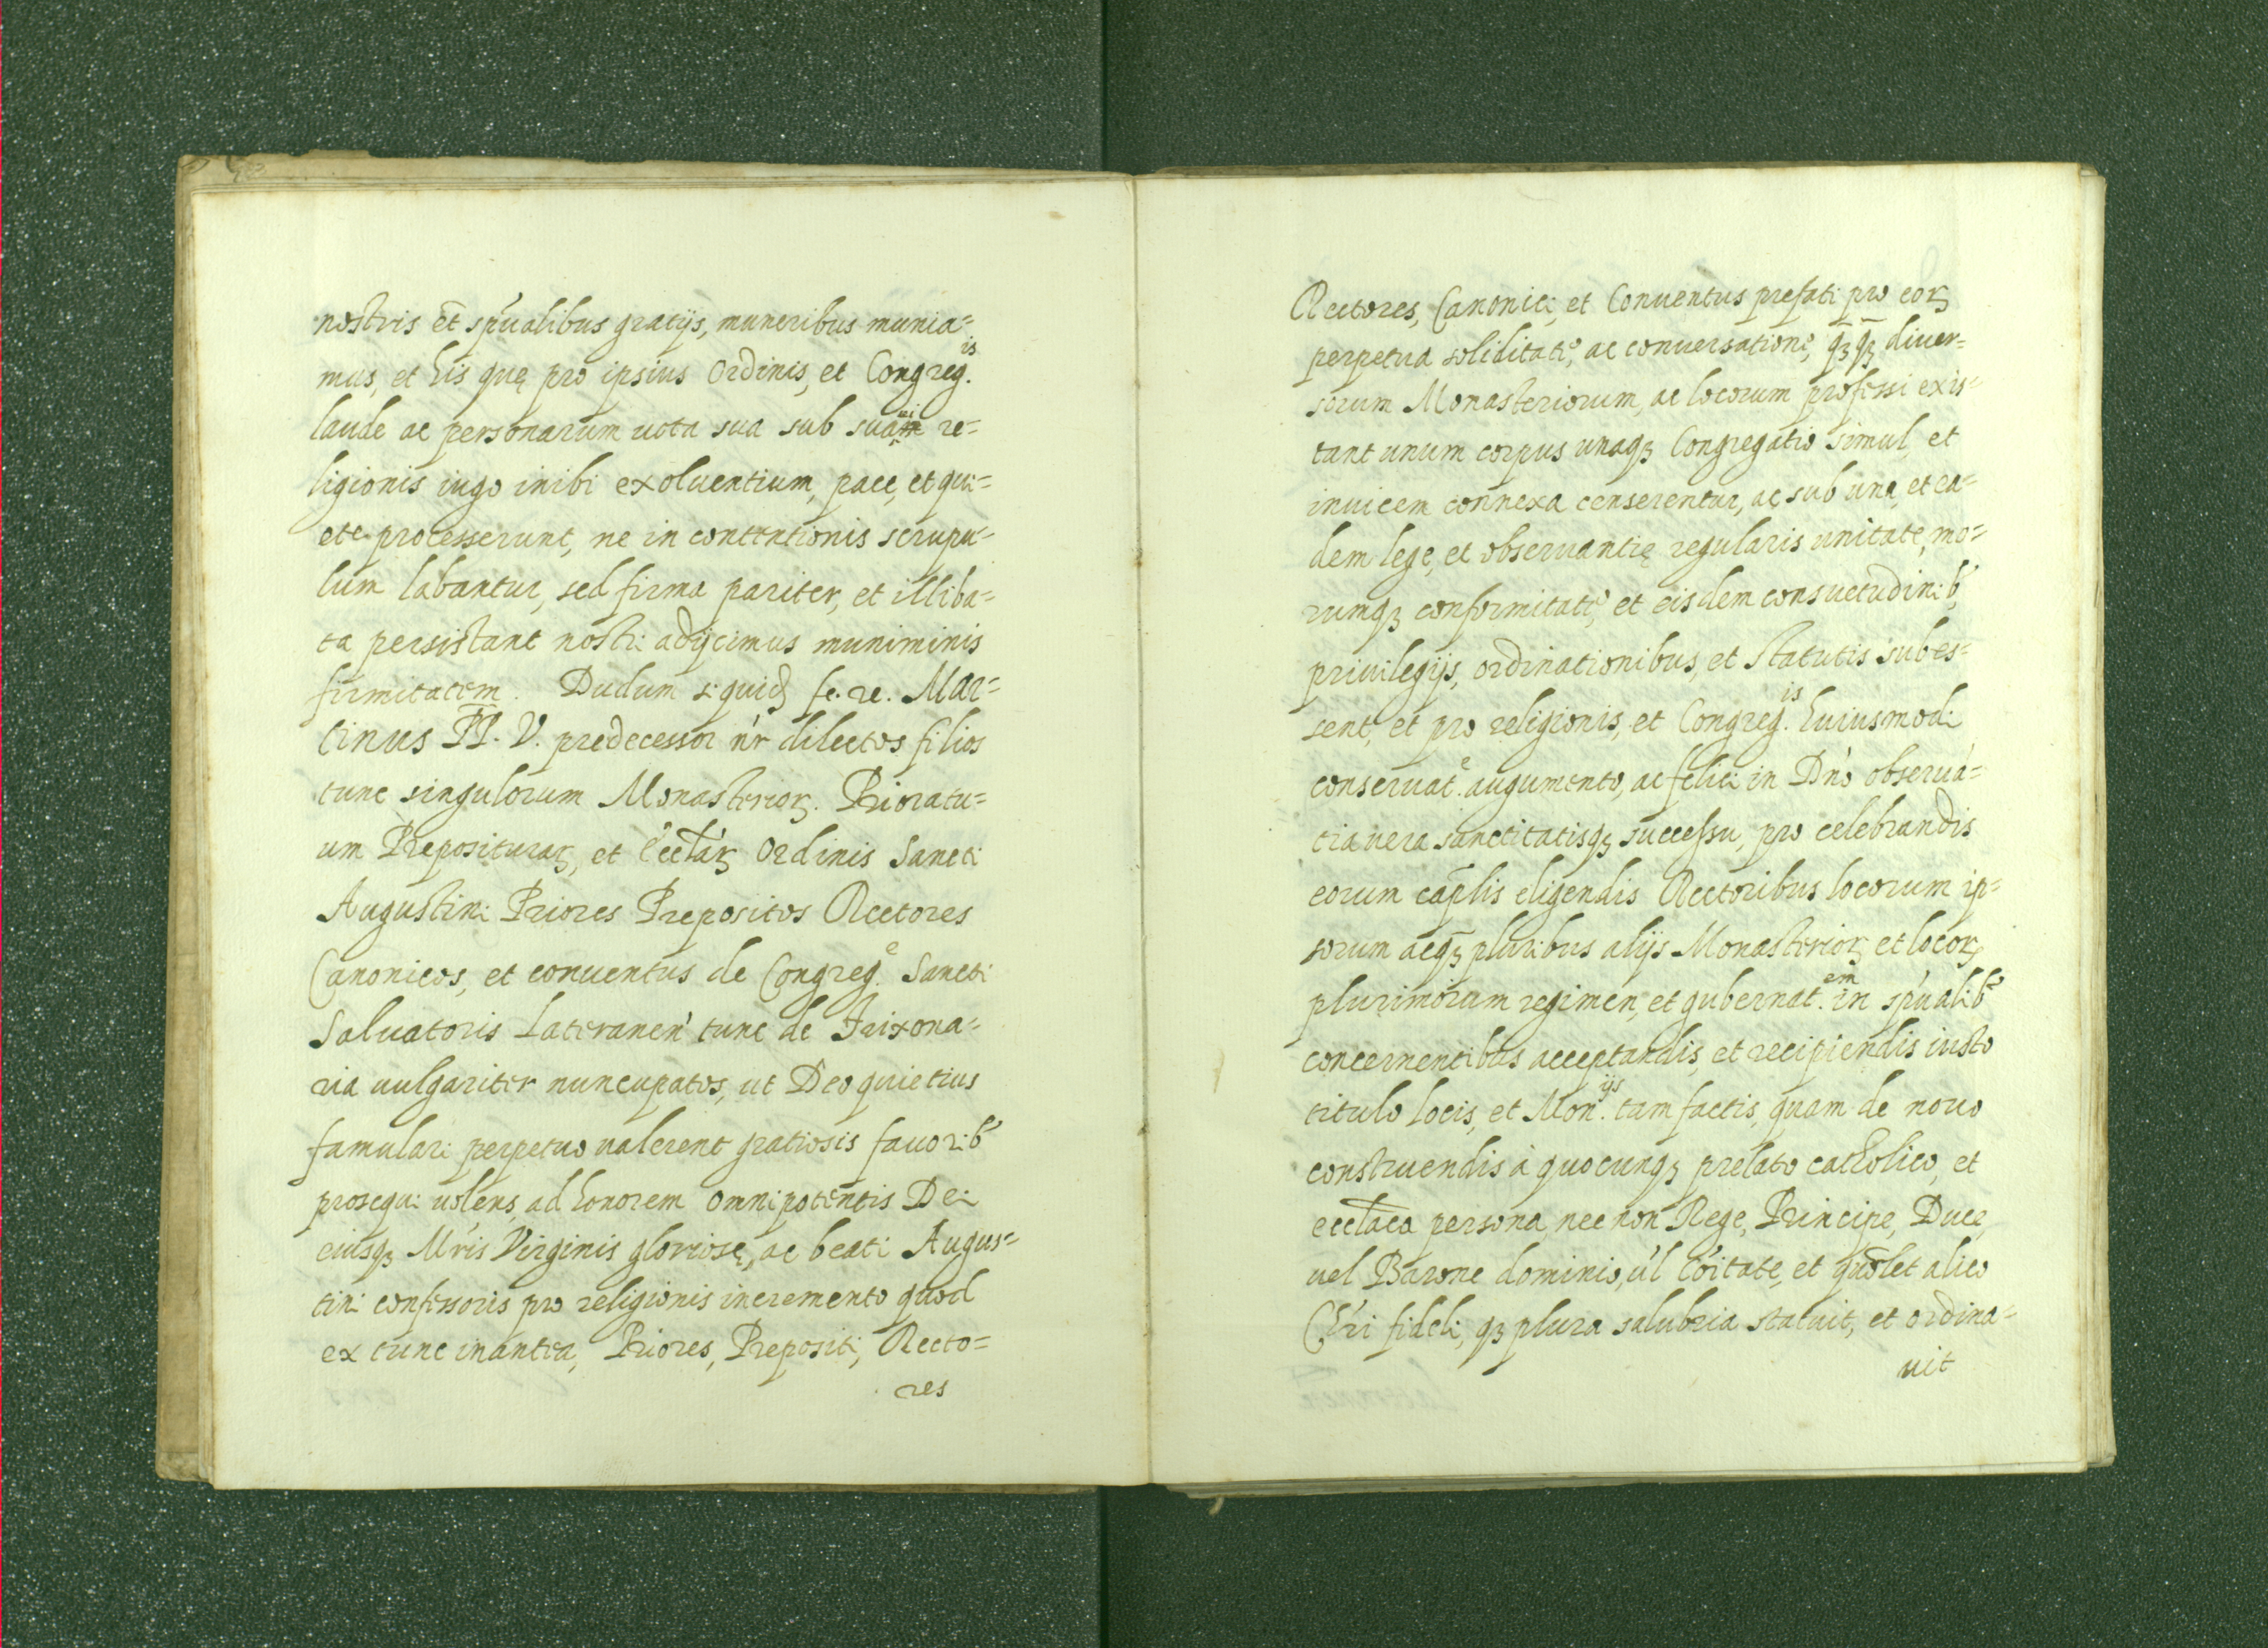 nostris et sp'ualibus gratijs, muneribus munia=
mus, et his quę pro ipsius Ordinis, et Congreg.is
laude ac personarum uota sua sub suaui re=
ligionis iugo inibi exoluentium, pace, et qui=
ete processerunt, ne in contentionis scrupu=
lum labantur, sed firma pariter, et illiba=
ta persistant nostri adijcimus muniminis
firmitatem. Dudum siquid fe. re. Mar=
tinus PP. V. predecessor n'r dilectos filios
tunc singulorum Monasterioꝝ. Prioratu=
um Preposituraꝝ, et Eccl'aꝝ Ordinis Sancti
Augustini Priores Prepositos Rectores
Canonicos, et conuentus de Congreg.e Sancti
Saluatoris Lateranen' tunc de Frixona=
ria uulgariter nuncupatos, ut Deo quietius
famulari perpetuo ualerent gratiosis fauorib'
prosequi uolens, ad honorem Omnipotentis Dei
eiusqꝫ M'ris Virginis gloriosę, ac beati Augus=
tini confessoris pro religionis incremento quod
ex tunc inantea, Priores, Prepositi, Recto=
res
Rectores, Canonici, et Conuentus prefati pro eoꝝ
perpetua soliditate, ac conuersatione, qꝫqꝫ diuer=
sorum Monasteriorum, ac locorum professi exis=
tant unum corpus unaqꝫ Congregatio simul, et
inuicem connexa censerentur, ac sub una, et ea=
dem lege, et obseruantię regularis unitate, mo=
rumqꝫ conformitate, et eisdem consuetudinib'
priuilegijs, ordinationibus, et Statutis subes=
sent, et pro religionis, et Congreg.is huiusmodi
conseruat.e augumento, ac felici in D'no obserua'=
tia uera sanctitatisqꝫ successu, pro celebrandis
eorum cap'lis eligendis Rectoribus locorum ip=
sorum acqꝫ pluribus alijs Monasterioꝝ et locoꝝ
plurimorum regimen, et gubernat.em in sp'ualib'
concernentibus acceptandis, et recipiendis iusto
titulo locis, et Mon.ijs tam factis, quam de nouo
construendis à quocunqꝫ prelato catholico, et
eccl'aca persona, nec non Rege, Principe, Duce,
uel Barone dominio, u'l co'itate, et quo'let alico
Ch'ri fideli, qꝫ plura salubria statuit, et ordina=
uit